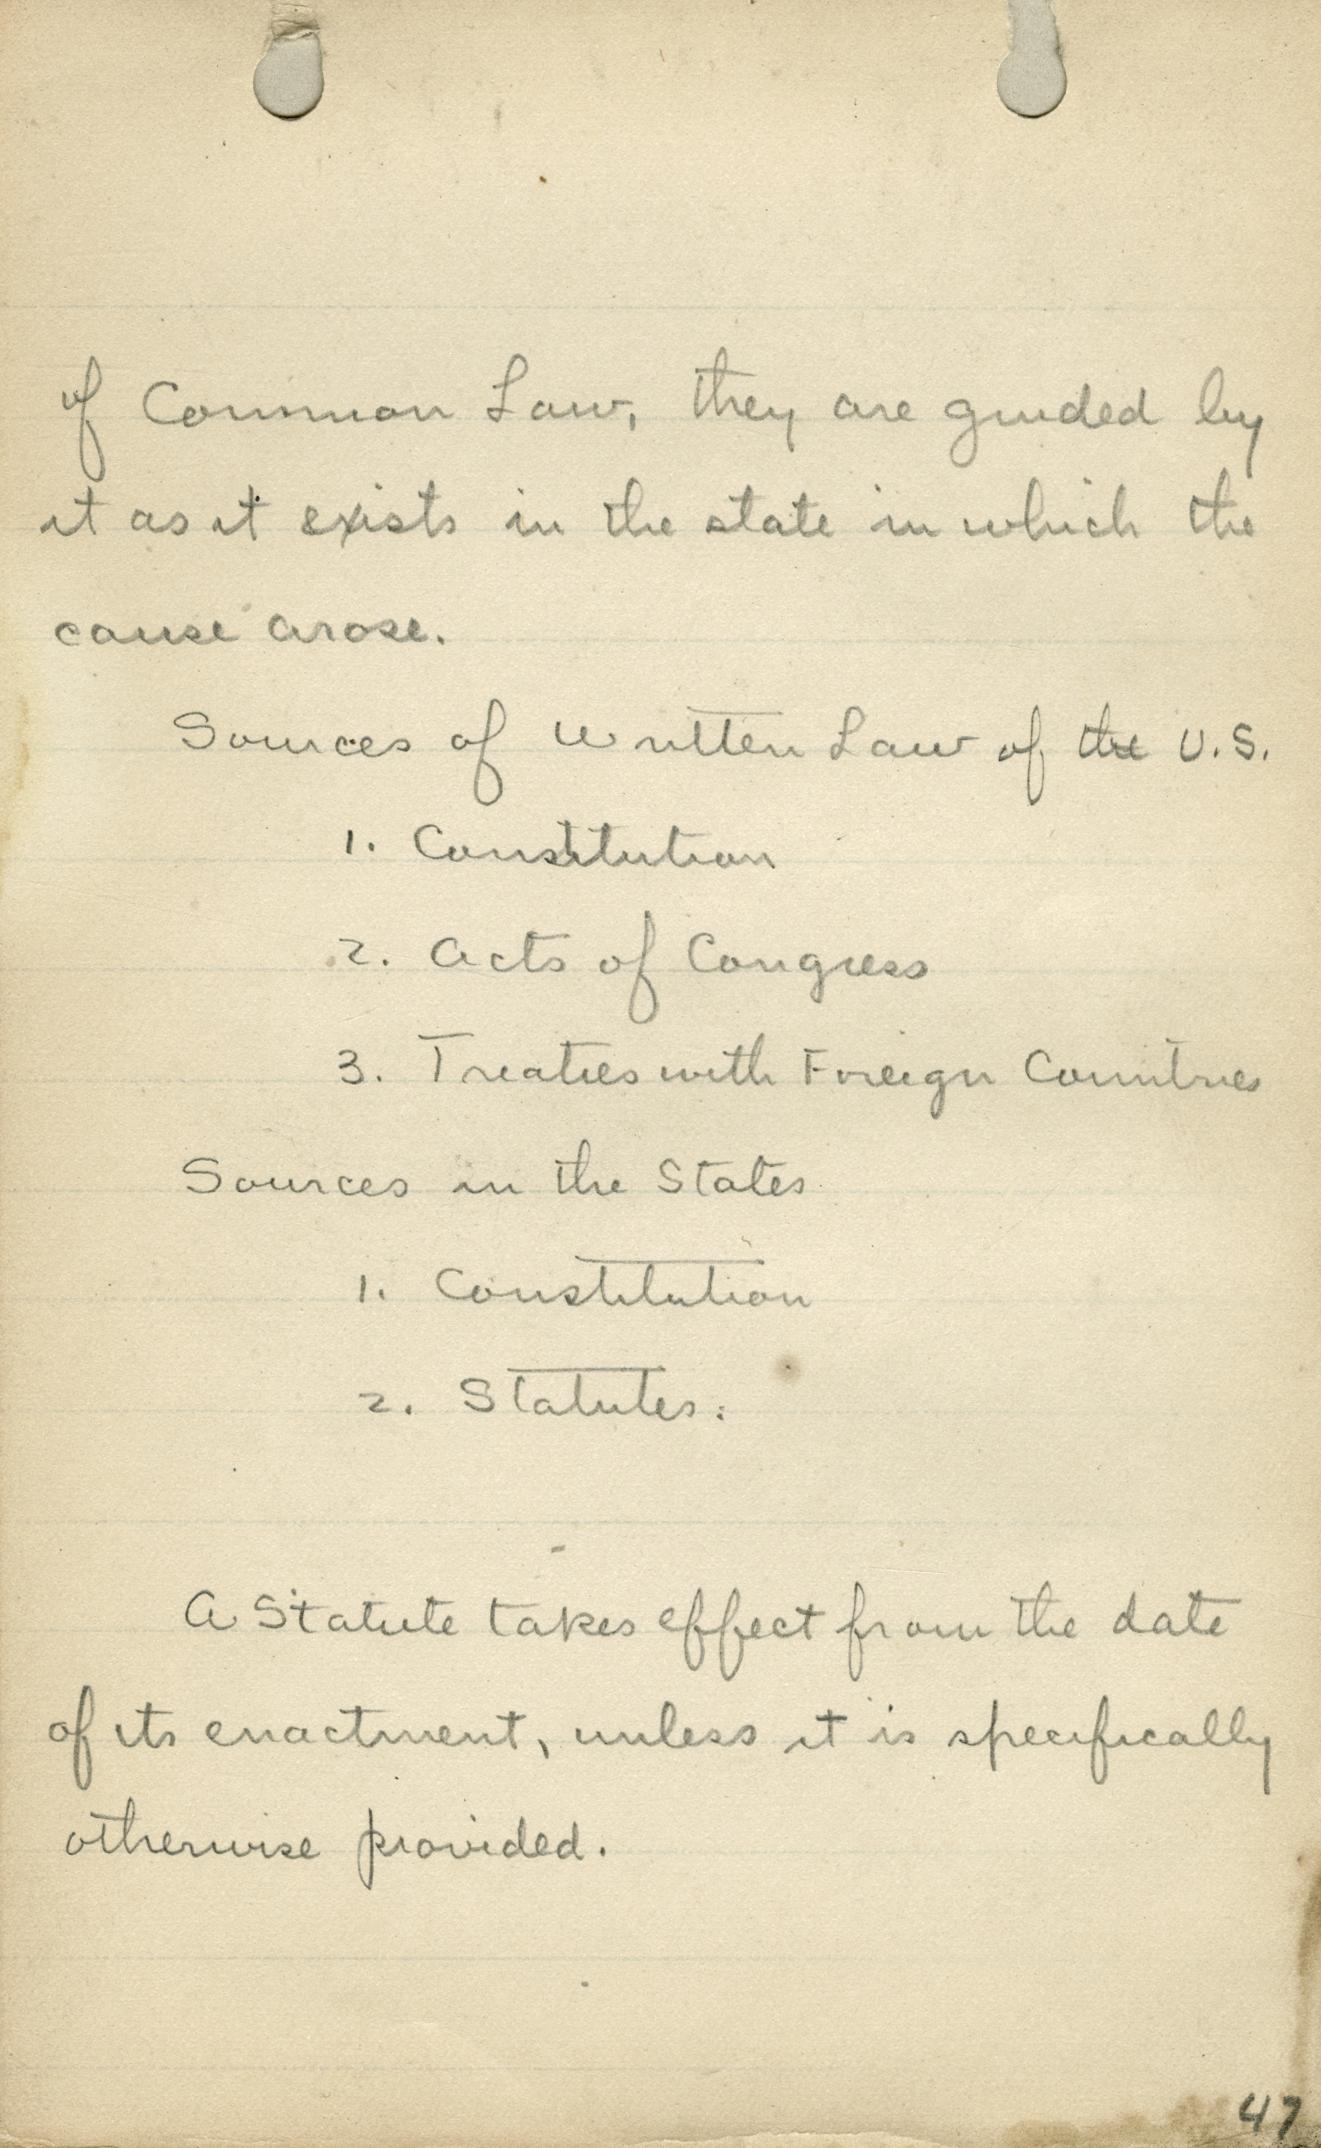 of Common Law, they are guided by
it as it exists in the state in which the
cause arose.
Sources of Written Law of the U.S.
1. Constitution
2. Acts of Congress
3. Treaties with Foreign Countries
Sources in the States
1. Constitution
2. Statutes.
A Statute takes effect from the date
of its enactment, unless it is specifically
otherwise provided.
47